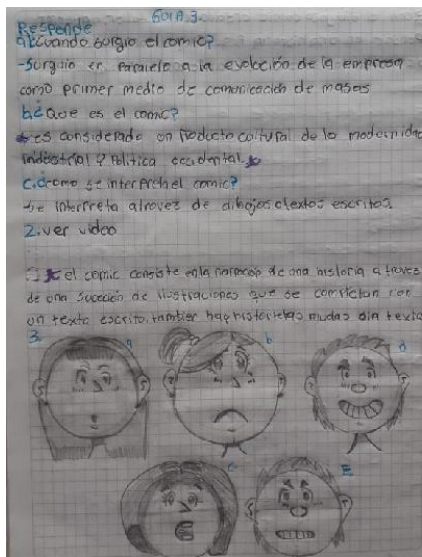 GUIA 3.
Responde
a¿cuando surgio el comic?
-surguio en paralelo a la evoloción de la empresa
como primer medio de comonicación de masas
b.¿Que es el comic?
es considerado un Producto coltural de la modernidad
indostrial y Politica occidental
c.¿como se interpreth el comic?
-se interpreta atravez de dibojos o textos escritos
2.ver video
el comic consiste en la narracion de una historia a travez
de una sucecion de ilustraciones que se completan con
un texto escrito. tambien hay historietas mudas sin texto
3.
a
b
D
c
E